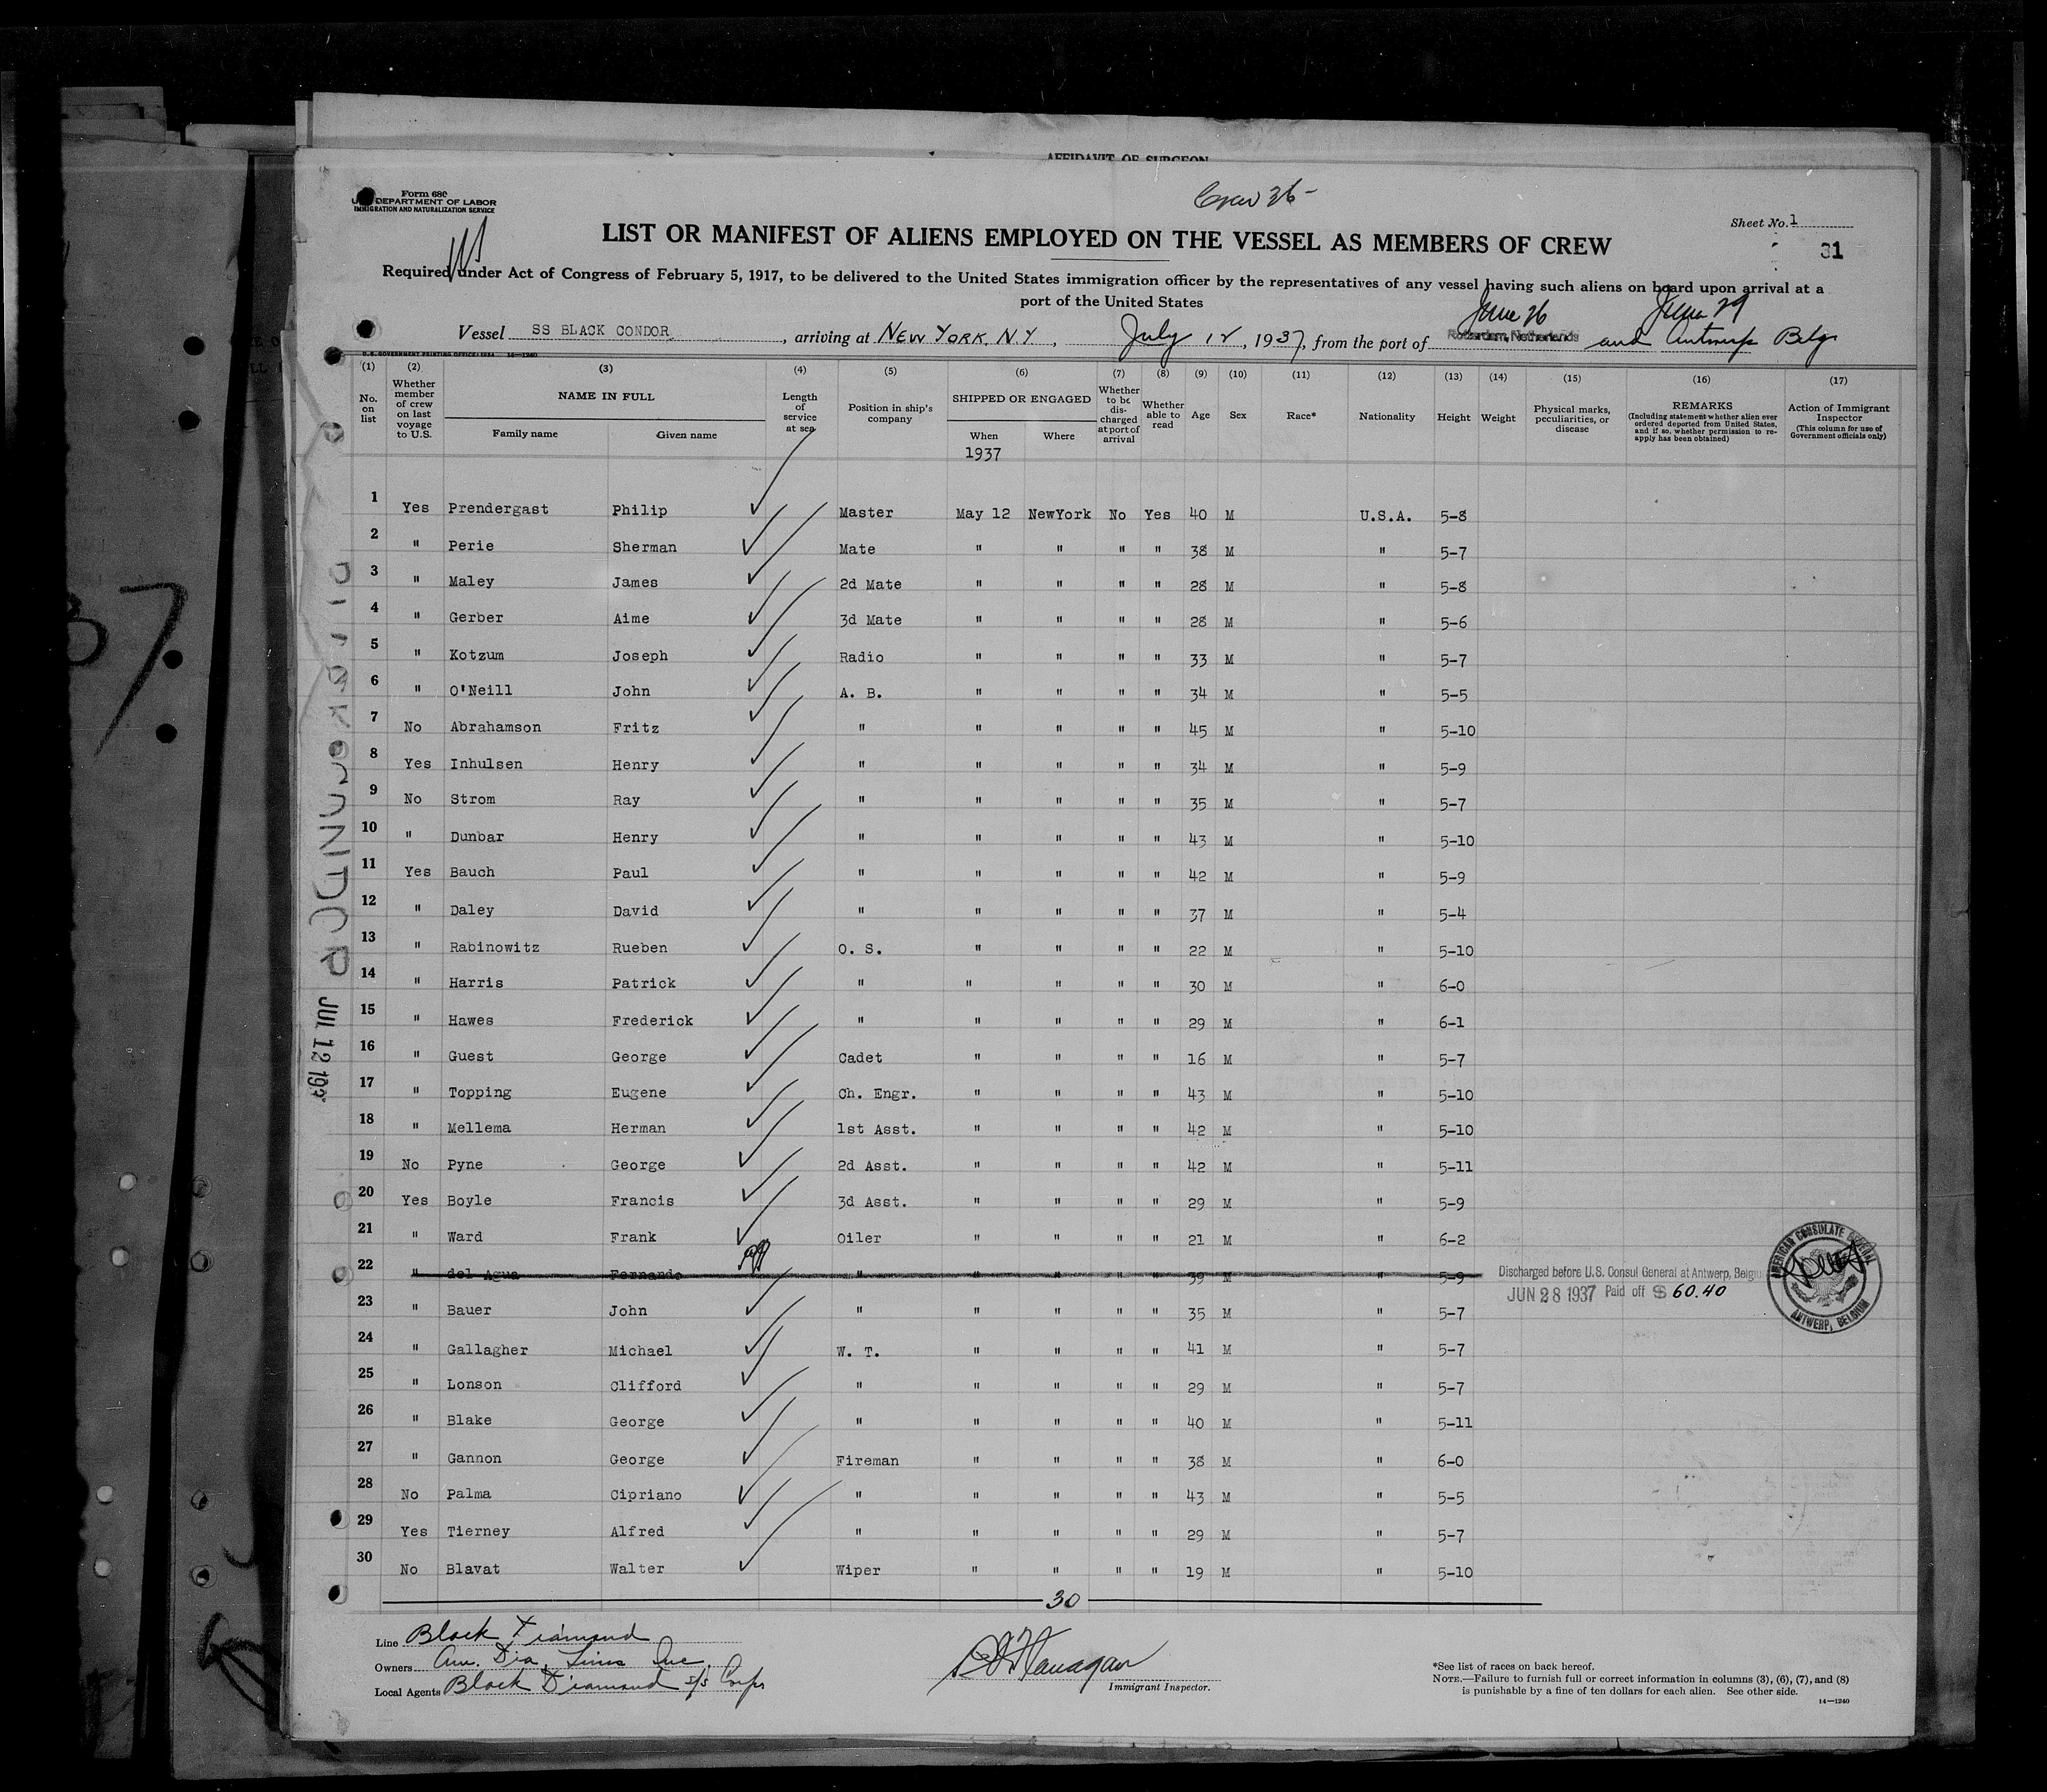 AFFIDAVIT OF SURGEON
Form 680
DEPARTMENT OF LABOR
IMMIGRATION AND NATURALIZATION SERVICE
Crew 36-
Sheet No. 1
31
LIST OR MANIFEST OF ALIENS EMPLOYED ON THE VESSEL AS MEMBERS OF CREW
Required under Act of Congress of February 5, 1917, to be delivered to the United States immigration officer by the representatives of any vessel having such aliens on board upon arrival at a
port of the United States
June 26 June 29
Vessel SS BLACK CONDOR, arriving at NEW YORK, N.Y, July 12, 1937, from the port of Rotterdam, Netherlands and Antwerp Belg.
(1) (2) (3) (4) (5) (6) (7) (8) (9) (10) (11) (12) (13) (14) (15) (16) (17)
No. on list
Whether member of crew on last voyage to U.S.
NAME IN FULL
Family name Given name
Length of service at sea
Position in ship's company
SHIPPED OR ENGAGED
When Where
1937
Whether to be discharged at port of arrival
Whether able to read
Age Sex Race* Nationality Height Weight
Physical marks, peculiarities, or disease
REMARKS
(Including statement whether alien ever ordered deported from United States, and if so, whether permission to re-apply has been obtained)
Action of Immigrant Inspector
(This column for use of Government officials only)
1 Yes Prendergast Philip Master May 12 NewYork No Yes 40 M U.S.A. 5-8
2 " Perie Sherman Mate " " " " 38 M " 5-7
3 " Maley James 2d Mate " " " " 28 M " 5-8
4 " Gerber Aime 3d Mate " " " " 28 M " 5-6
5 " Kotzum Joseph Radio " " " " 33 M " 5-7
6 " O'Neill John A. B. " " " " 34 M " 5-5
7 No Abrahamson Fritz " " " " " 45 M " 5-10
8 Yes Inhulsen Henry " " " " " 34 M " 5-9
9 No Strom Ray " " " " " 35 M " 5-7
10 " Dunbar Henry " " " " " 43 M " 5-10
11 Yes Bauch Paul " " " " " 42 M " 5-9
12 " Daley David " " " " " 37 M " 5-4
13 " Rabinowitz Rueben O. S. " " " " 22 M " 5-10
14 " Harris Patrick " " " " " 30 M " 6-0
15 " Hawes Frederick " " " " " 29 M " 6-1
16 " Guest George Cadet " " " " 16 M " 5-7
17 " Topping Eugene Ch. Engr. " " " " 43 M " 5-10
18 " Mellema Herman 1st Asst. " " " " 42 M " 5-10
19 No Pyne George 2d Asst. " " " " 42 M " 5-11
20 Yes Boyle Francis 3d Asst. " " " " 29 M " 5-9
21 " Ward Frank Oiler " " " " 21 M " 6-2
22 " del Agua Fernando " " " " " 39 M " 5-9 Discharged before U.S. Consul General at Antwerp, Belgiu
JUN 28 1937 Paid off $ 60.40
AMERICAN CONSULATE GENERAL
ANTWERP, BELGIUM
23 " Bauer John " " " " " 35 M " 5-7
24 " Gallagher Michael W. T. " " " " 41 M " 5-7
25 " Lonson Clifford " " " " " 29 M " 5-7
26 " Blake George " " " " " 40 M " 5-11
27 " Gannon George Fireman " " " " 38 M " 6-0
28 No Palma Cipriano " " " " " 43 M " 5-5
29 Yes Tierney Alfred " " " " " 29 M " 5-7
30 No Blavat Walter Wiper " " " " 19 M " 5-10
30
Line Black Diamond
Owners Am. Dia. Lines Inc.
Local Agents Black Diamond s/s Corp
Flanagan
Immigrant Inspector.
*See list of races on back hereof.
NOTE.—Failure to furnish full or correct information in columns (3), (6), (7), and (8)
is punishable by a fine of ten dollars for each alien. See other side.
14—1240
JUL 12 193
37